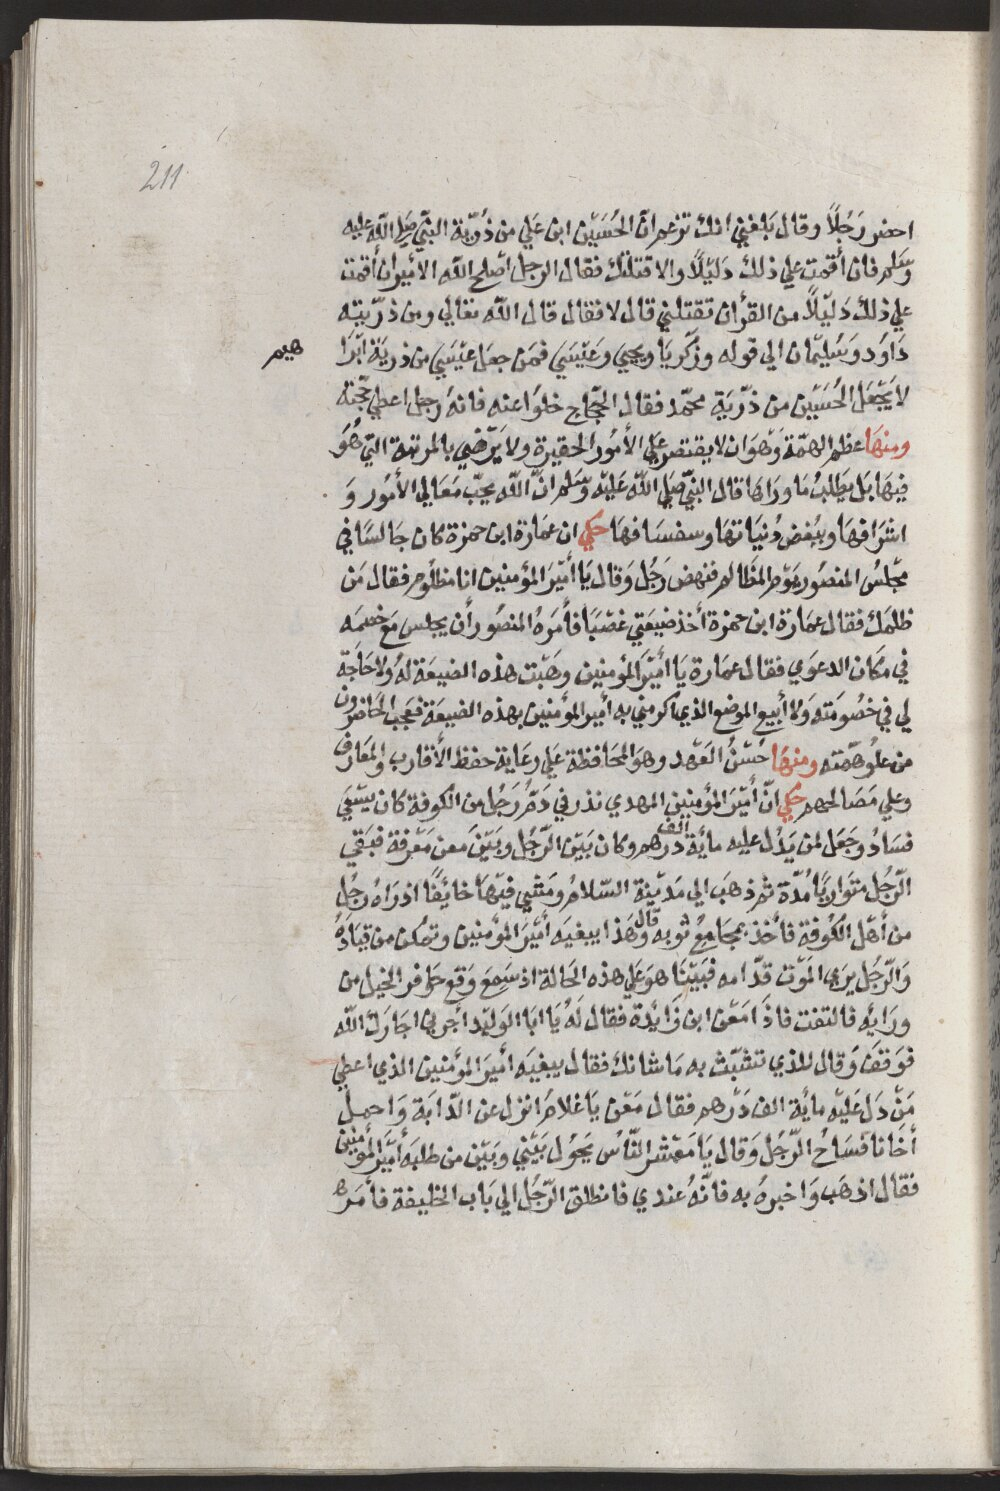 211
احضر رَجُلاً وقال بَلغني انك تزعم انّ الحُسَيْن ابن عَلي من ذُريّة النبّي صَلي اللّه عَليه
وسَلم فان أقمت علي ذلك دَليْلاً والا قتلتك فقال الرجل اصْلح اللّه الأمير ان أقمت
علي ذلك دَليْلاً من القرأن تقتلني قال لا فقال قال اللّه تعالي ومن ذرّيته
دَاوُد وَسُليْمان الي قوله وزكريَا ويحيي وَعيْسَي فمَن جعَل عيْسَي من ذريَة ابْرَا
هيم
لا يَجْعَل الحُسَيْن من ذرّيَة محمّد فقال الحجّاج خلوا عنه فانهُ رجل اعطي حجّته
ومنهَا عظم الهمّة وَهوَ ان لا يقتصر عَلي الأمُور الحقيرة ولا يَرْضي بالمرتبة التي هُوَ
فيهَا بَل يَطلبُ مَا ورَاهَا قال النبّي صَلي اللّه عَليْه وسَلم انّ اللّه يحبّ مَعَالي الأمُور وَ
اشرَافهَا ويبُغض دُنيَاتهَا وسفسَافهَا حكي ان عمَارة ابن حمزة كان جَالسًا في
مجْلسُ المنصُور يَوْم المظَالم فنهض رَجُل وقال يَا أميْرَ المؤمنين انا مظلُوم فقال مَن
ظلمَك فقال عمَارة ابن حمزة أخذ ضيعَتي غصْبًا فأمَرهُ المنصُور أن يجلس مَع خصمَه
في مكان الدعوَي فقال عمَارة يَا أميْرَ المؤمنين وهَبْت هذه الضيعَة لهُ ولا حَاجَة
لي في خصُومَته وَلا أبيع الموضع الذي اكرمني به أمير المؤمنين بهذه الضيعَة فعَجب الحَاضرون
من علوّ همّته ومنهَا حُسْنُ العَهْد وهو المحَافظة عَلي رعَاية حفظ الأقارب والمعَارف
وعلي مصَالحهم حكي انّ أميْرَ المؤمنين المهدي نذر في دَم رَجُل من الكوفة كان يسْعَي
فسَادُ وجَعَل لمن يَدُل عليه مائَة الف درهم وكان بَيْن الرّجُل وبَيْنَ مَعن مَعْرفة فبَقي
الرّجُل متوَاريًا مُدّة ثم ذهبَ الي مَديْنة السّلام ومَشي فيْهَا خائفًا اذ رَاهُ رجُل
من أهْل الكُوفة فأخذ بمجَامِعُ ثوبه وقال هَذا يبغيَه أميْرَ المؤمنين وتمكن من قيَادَهُ
وَالرّجُل يرَي المَوْت قدّامه فبَيْنَا هوَ عَلي هذه الحَالة اذ سَمِعَ وَقع حوَافر الخيل من
ورَائه فالتفت فاذَا مَعْن ابن زَائدة فقال لهُ يَا ابَا الوَليْد أجرني اجَارك اللّه
فوَقفَ وَقال للذي تشبّث به مَا شانك فقال يبغيَه أميرَ المؤمنين الذي اعطي
مَنْ دَل عَليْه مائة الف دَرْهم فقال مَعْن يَا غلام انزل عن الدّابَة وَاحمل
أخَانا فصَاحُ الرّجُل وَقال يَا مَعْشر النّاس يَحوُل بَيْني وبَيْن من طلبَه أميْر المؤمنين
فقال اذهَب وَاخبرهُ به فانّهُ عندي فانطلق الرّجُل الي بَاب الخليفة فأمَر